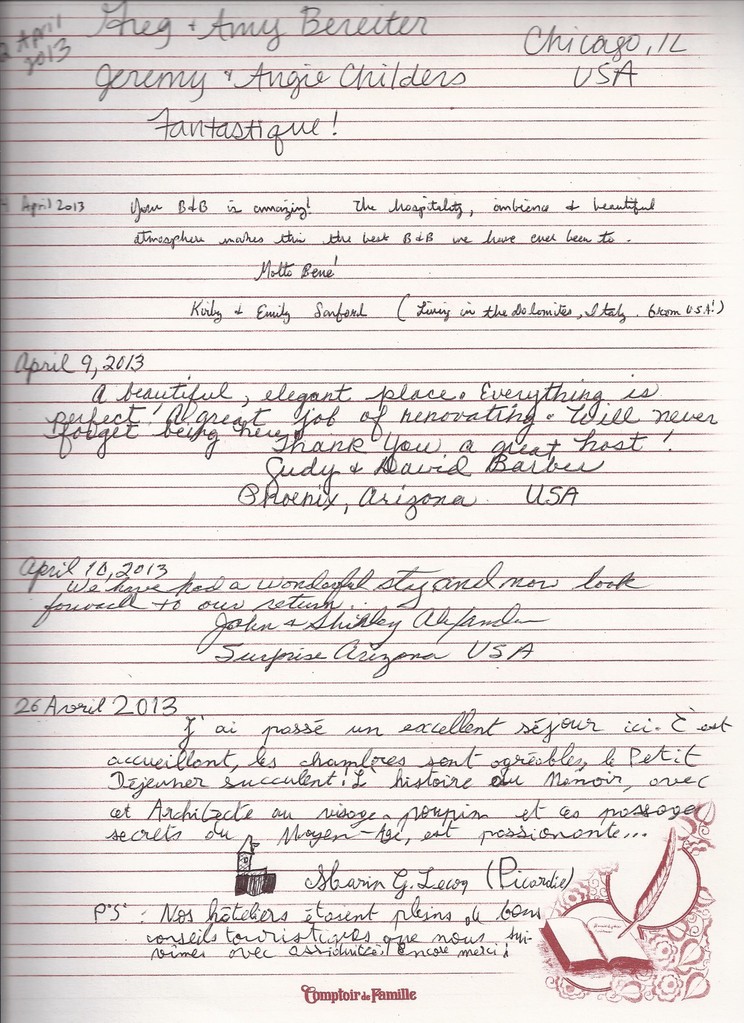 2 April 2013
Greg & Amy Bereiter
Chicago, IL
Jeremy & Angie Childers
USA
Fantastique!
April 2013
Your B&B is amazing! The hospitality, ambience & beautiful
atmosphere makes this the best B&B we have ever been to.
Molto Bene!
Kirby & Emily Sanford (Living in the Dolomites, Italy. from USA!)
April 9, 2013
A beautiful, elegant place. Everything is
perfect! A great job of renovating. Will never
forget being here! Thank You a great host!
Judy & David Barber
Phoenix, Arizona USA
April 10, 2013
We have had a wonderful stay and now look
forward to our return...
John & Shirley Alexander
Surprise Arizona USA
26 Avril 2013
J'ai passé un excellent séjour ici. C'est
accueillant, les chambres sont agréables, le Petit
Déjeuner succulent! L'histoire du Manoir, avec
cet Architecte au visage poupin et ces passages
secrets du Moyen-Age, est passionante...
Marin G. Lecoq (Picardie)
P.S. : Nos hôteliers étaient pleins de bons
conseils touristiques que nous sui-
vîmes avec assiduité! Encore merci!
Comptoir de Famille